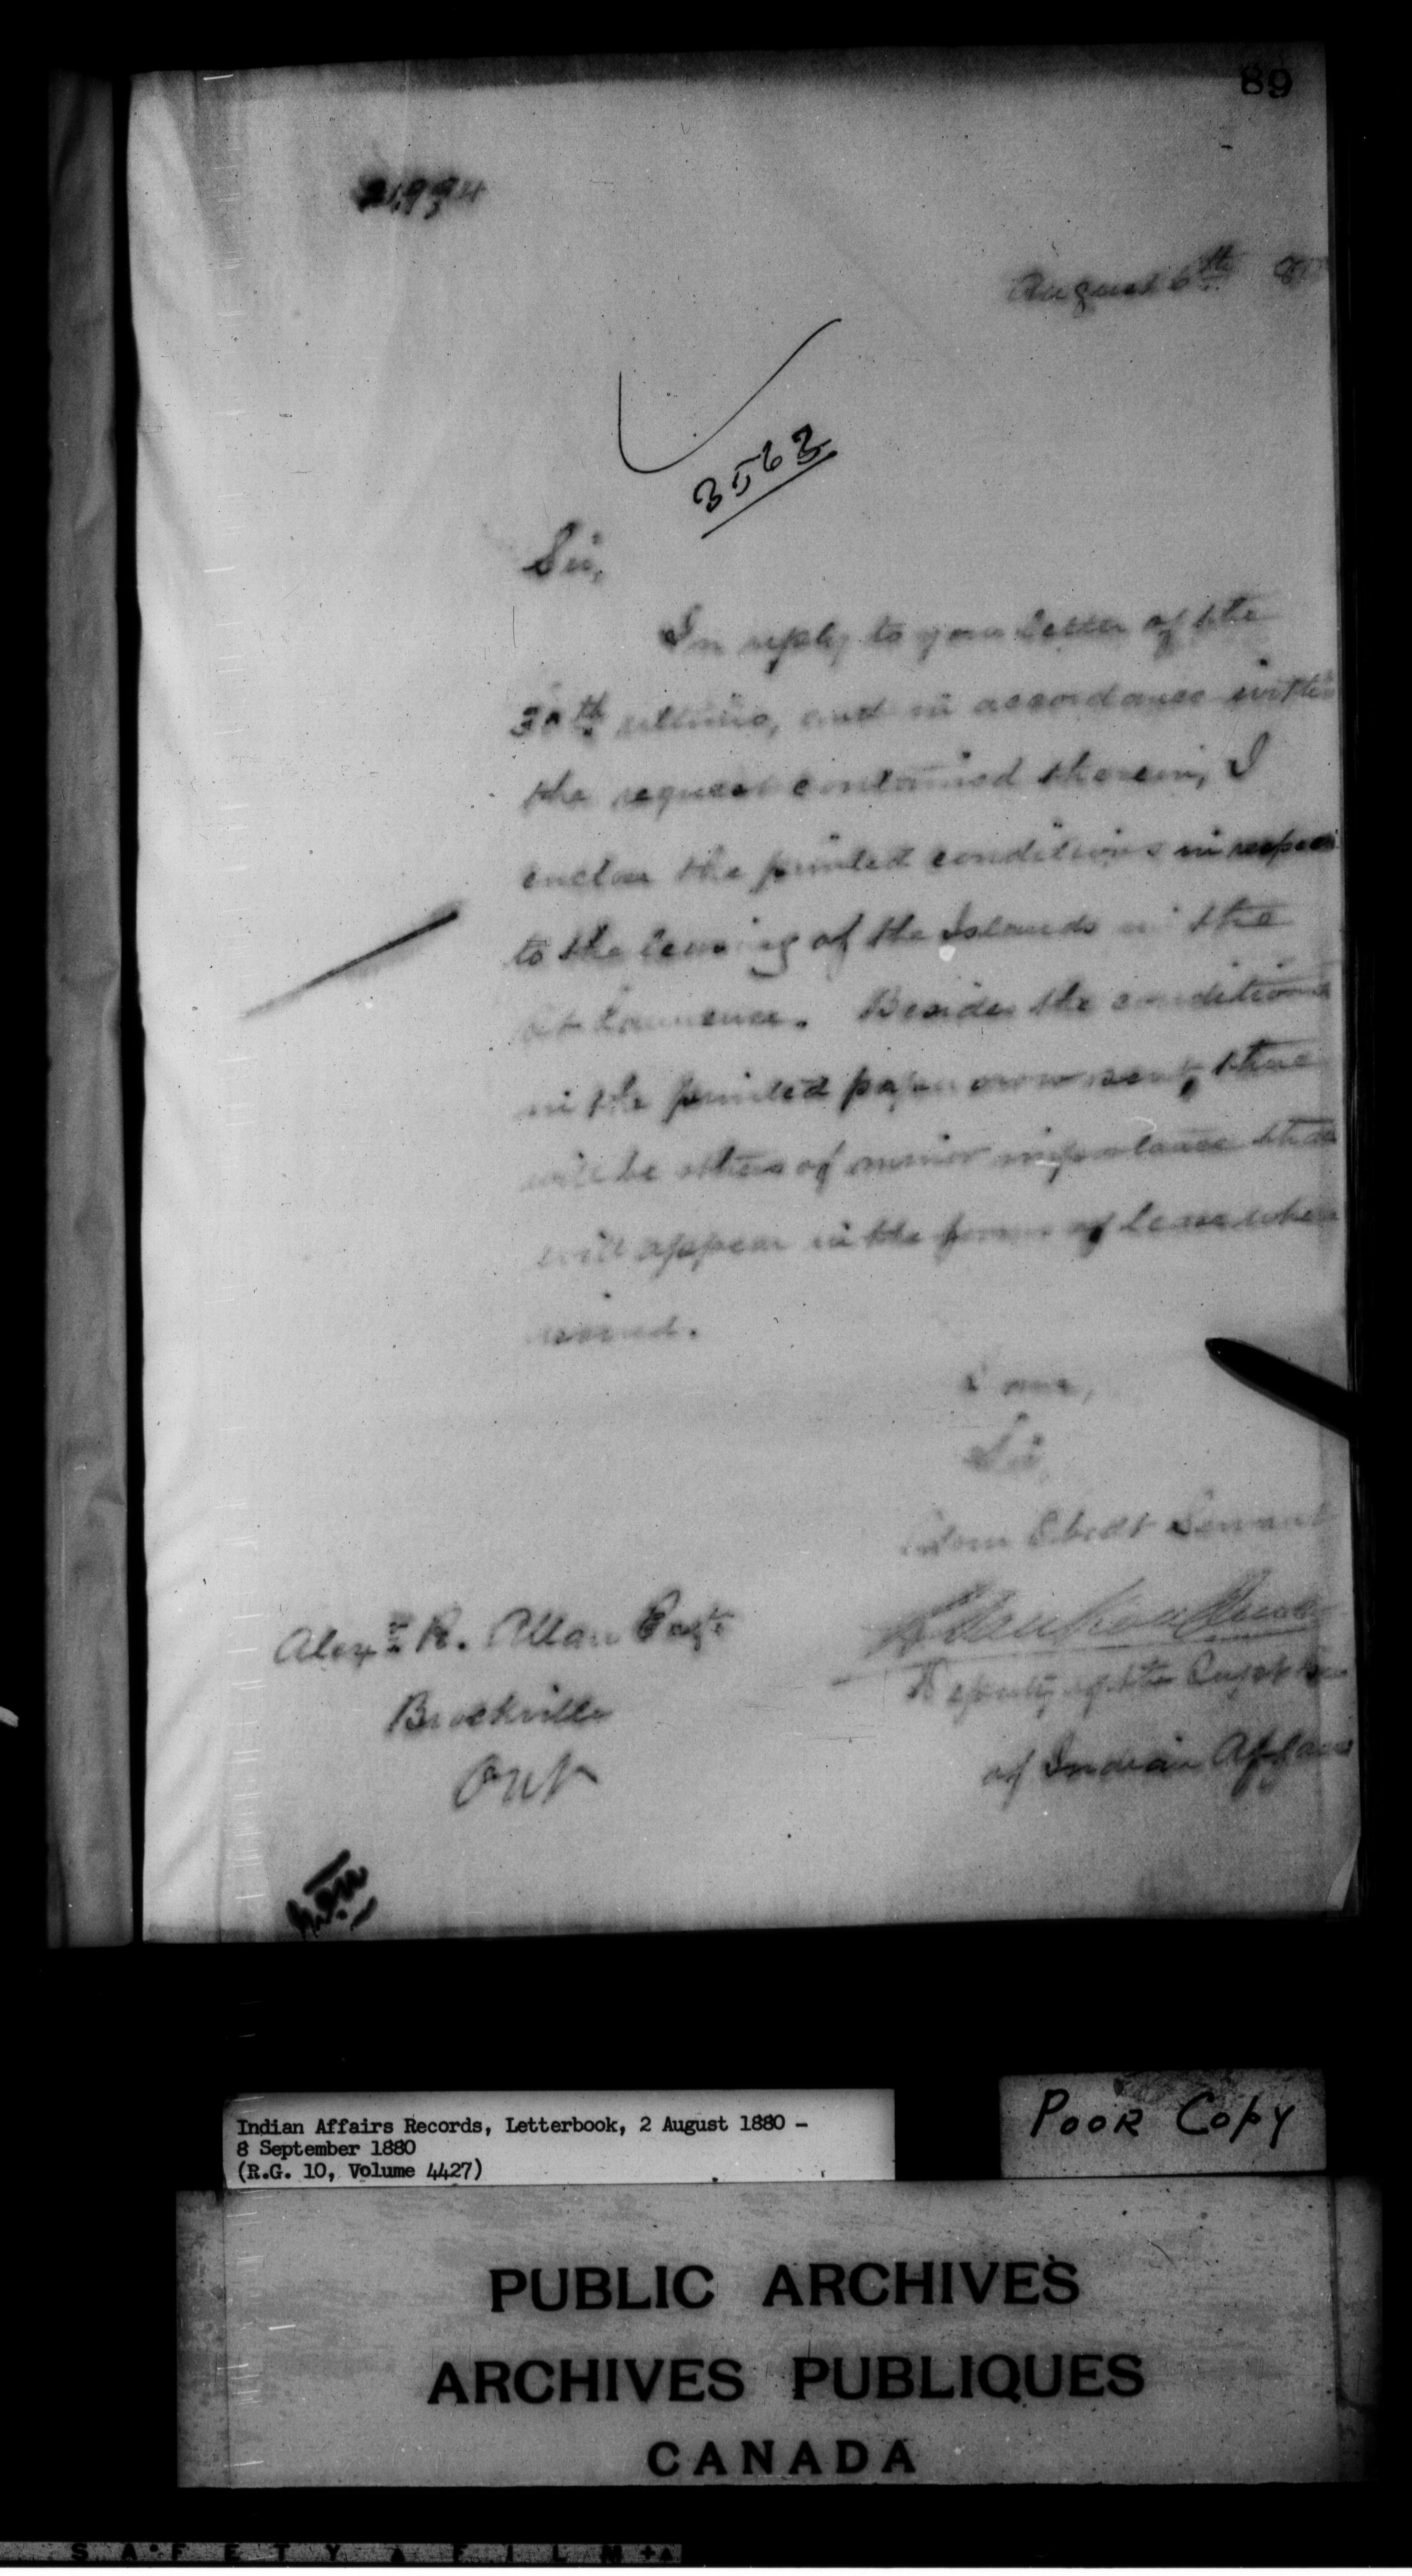 89
21,994
August 6th 80
3563
Sir,
In reply to your letter of the
30th ultimo, and in accordance with
the request contained therein, I
enclose the printed conditions in respect
to the leasing of the Islands in the
St Lawrence. Besides the conditions
in the printed paper now sent, there
will be others of minor importance that
will appear in the form of lease when
issued.
I am,
Sir,
Your Obedt Servant
L Vankoughnet
Deputy of the Supt Gen
of Indian Affairs
Alexr R. Allan Esqre
Brockville
Ont
Indian Affairs Records, Letterbook, 2 August 1880 -
8 September 1880
(R.G. 10, Volume 4427)
POOR COPY
PUBLIC ARCHIVES
ARCHIVES PUBLIQUES
CANADA
SAFETY FILM